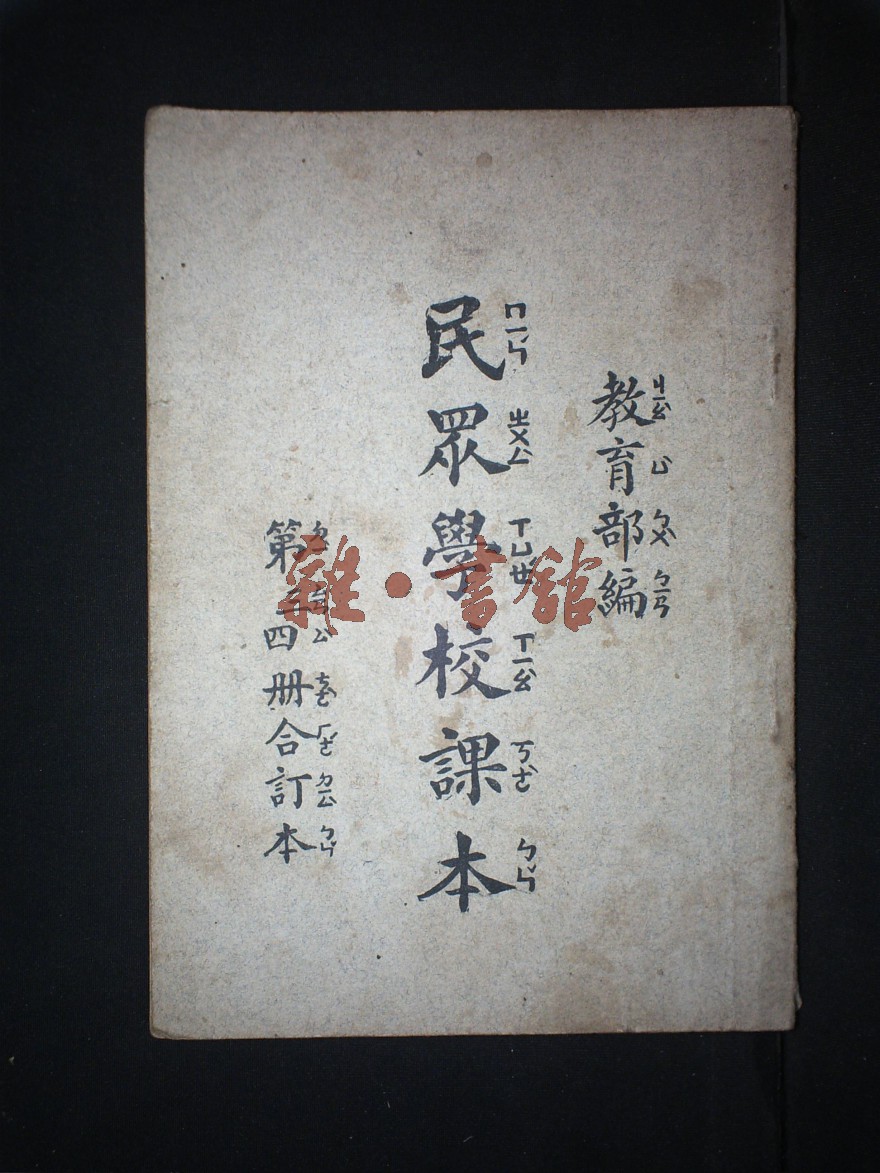 教育部編
民眾學校課本
第三四册合訂本
雜·書館